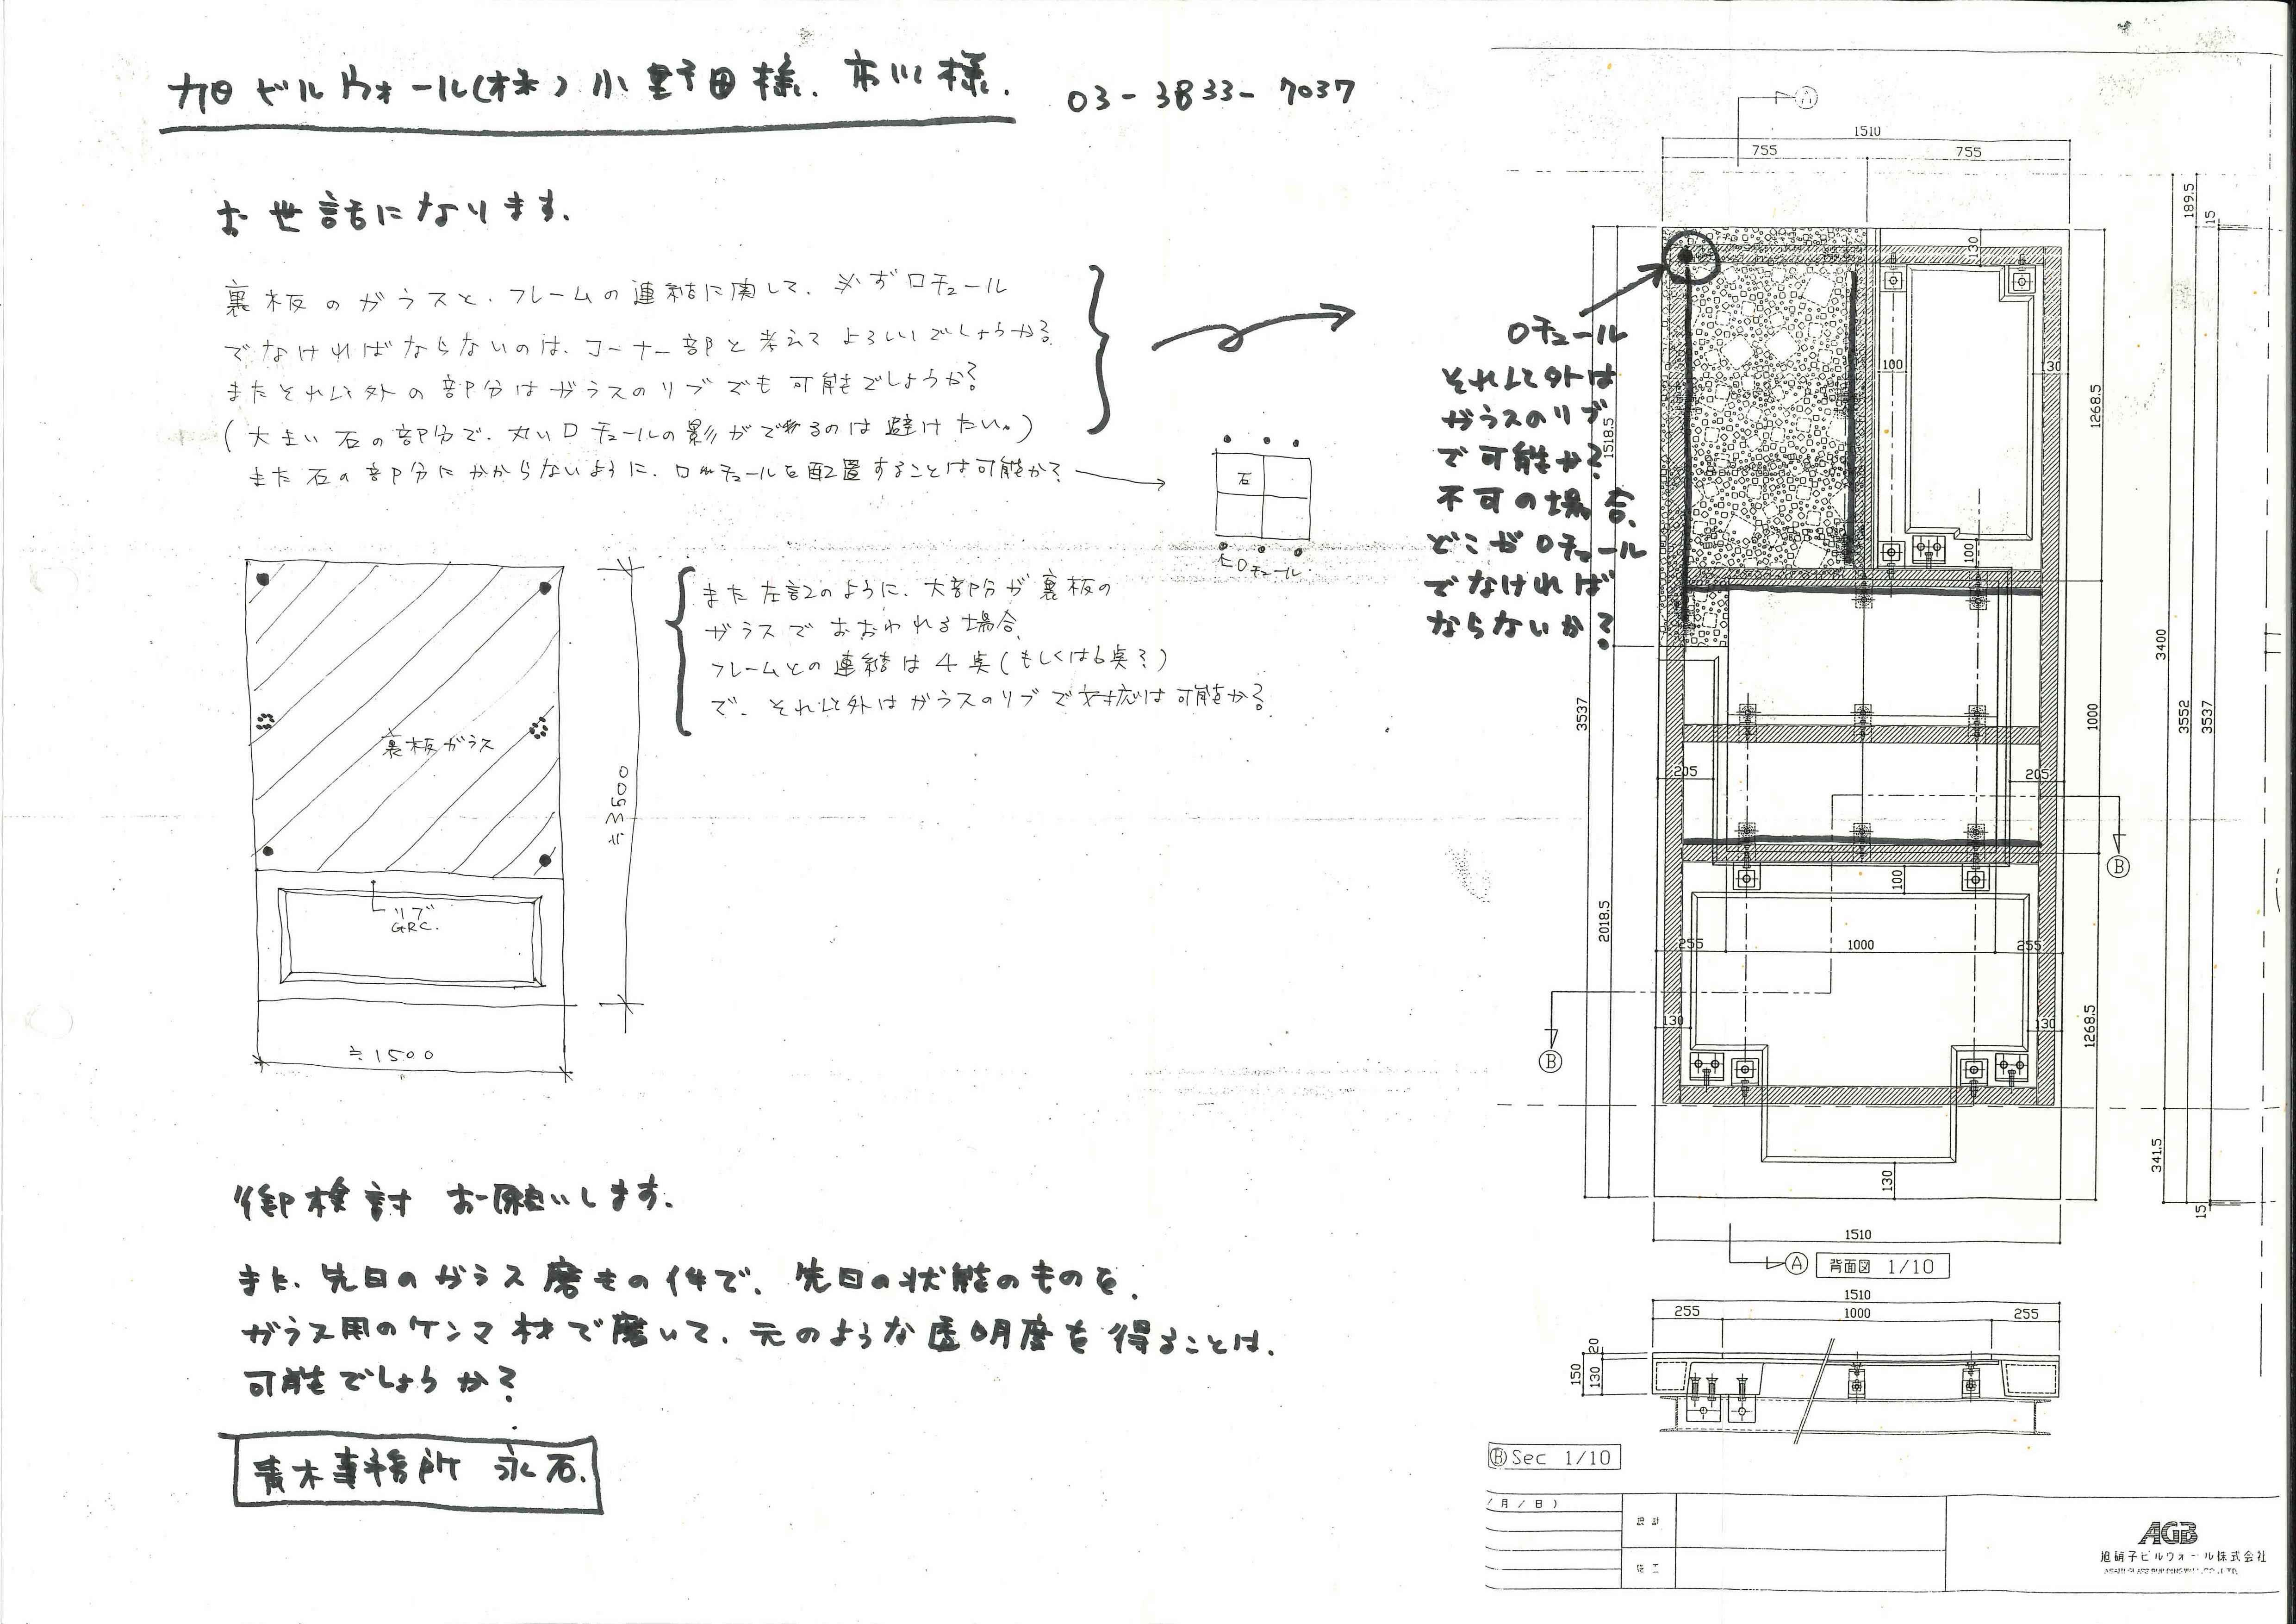 旭ビルウォール(株) 小野田様. 市川様.
03-3833-7037
お世話になります.
裏板のガラスと、フレームの連結に関して、必ずロチュール
でなければならないのは、コーナー部と考えてよろしいでしょうか?
またそれ以外の部分はガラスのリブでも可能でしょうか?
(大きい石の部分で、丸いロチュールの影ができるのは避けたい。)
また石の部分にかからないように、ロチュールを配置することは可能か?
石
ロチュール.
裏板ガラス
リブ
GRC.
≒3500
≒1500
また左記のように、大部分が裏板の
ガラスでおおわれる場合、
フレームとの連結は4点(もしくは6点?)
で、それ以外はガラスのリブで対応は可能か?
御検討 お願いします.
また、先日のガラス磨きの件で、先日の状態のものを、
ガラス用のケンマ材で磨いて、元のような透明度を得ることは、
可能でしょうか?
青木事務所 永石.
ロチュール
それ以外は
ガラスのリブ
で可能か?
不可の場合、
どこがロチュール
でなければ
ならないか?
A
1510
755
755
189.5
15
130
100
130
1268.5
1518.5
3537
3400
3552
3537
1000
100
205
205
B
100
2018.5
255
1000
255
130
130
1268.5
B
341.5
15
130
1510
A
背面図 1/10
1510
255
1000
255
20
150
130
B Sec 1/10
/ 月 / 日 )
設 計
施 工
AGB
旭硝子ビルウォール株式会社
ASAHI GLASS BUILDING WALL CO., LTD.